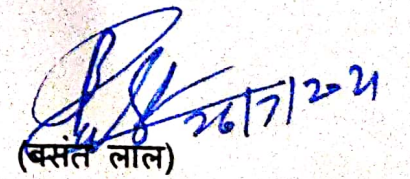 26/7/2021
(बसंत लाल)